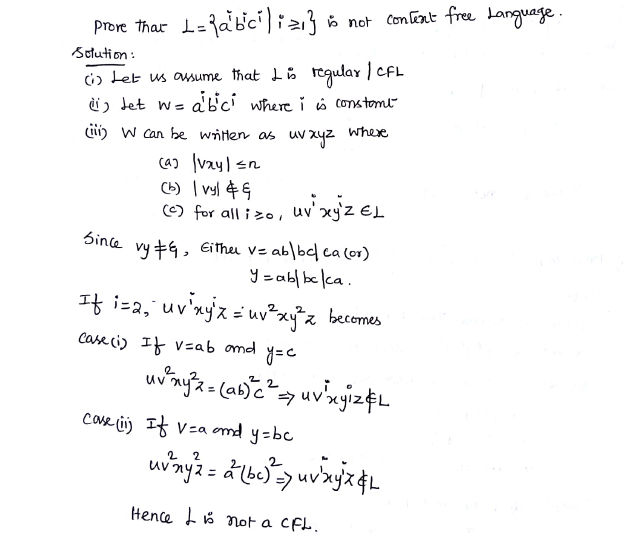 Prove that L = {aⁱbⁱcⁱ | i ≥ 1} is not context free Language.
Solution:
(i) Let us assume that L is regular | CFL
(ii) Let w = aⁱbⁱcⁱ where i is constant
(iii) W can be written as uvxyz where
(a) |vxy| ≤ n
(b) |vy| ≠ ε
(c) for all i ≥ 0, uvⁱxyⁱz ∈ L
Since vy ≠ ε, Either v = ab|bc|ca (or)
y = ab|bc|ca.
If i=2, uvⁱxyⁱz = uv²xy²z becomes
Case (i) If v=ab and y=c
uv²xy²z = (ab)²c² ⇒ uvⁱxyⁱz ∉ L
Case (ii) If v=a and y=bc
uv²xy²z = a²(bc)² ⇒ uvⁱxyⁱz ∉ L
Hence L is not a CFL.